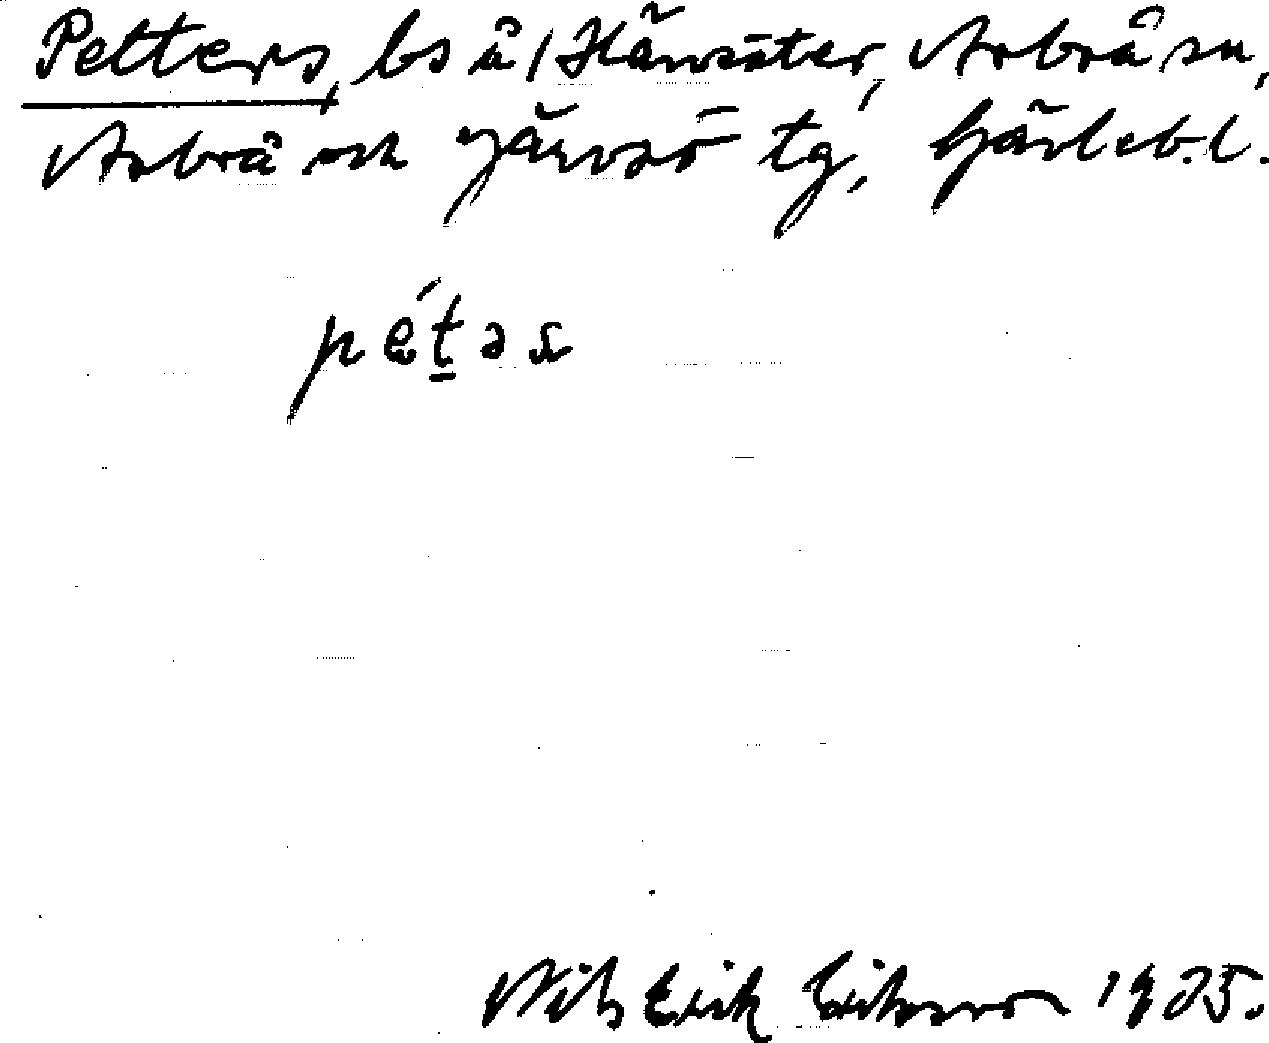 Petters, bs å/Hänsäter, Arbrå sn,
Arbrå och Järvsö tg, Gävleb.l.
pé̱təs
Nils Erik Eriksson 1935.